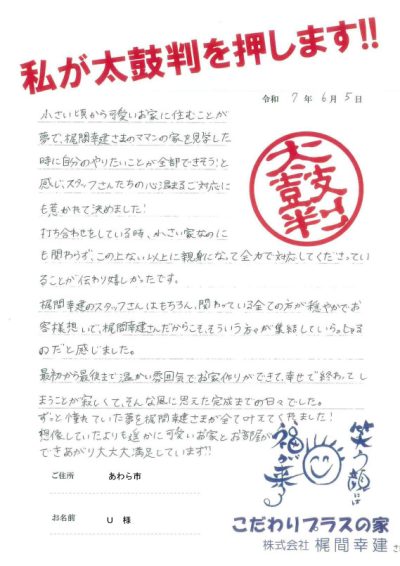 私が太鼓判を押します!!
令和 7年 6月 5日
小さい頃から可愛いお家に住むことが
夢で、梶間幸建さまのママンの家を見学した
時に自分のやりたいことが全部できそう!と
感じ、スタッフさんたちの心温まるご対応に
も惹かれて決めました!
太鼓判
打ち合わせをしている時、小さい家なのに
も関わらず、この上ない以上に親身になって全力で対応してくださってい
ることが伝わり嬉しかったです。
梶間幸建のスタッフさんはもちろん、関わっている全ての方が穏やかでお
客様想いで、梶間幸建さんだからこそ、そういう方々が集結していらっしゃる
のだと感じました。
最初から最後まで温かい雰囲気でお家作りができて、幸せで終わってし
まうことが寂しくて、そんな風に思えた完成までの日々でした。
ずっと憧れていた夢を梶間幸建さまが全て叶えてくれました!
想像していたよりも遥かに可愛いお家とお部屋が
できあがり大大大満足しています!!
笑う顔には
福が来る
ご住所 あわら市
お名前 U 様
こだわりプラスの家
株式会社 梶間幸建 さ